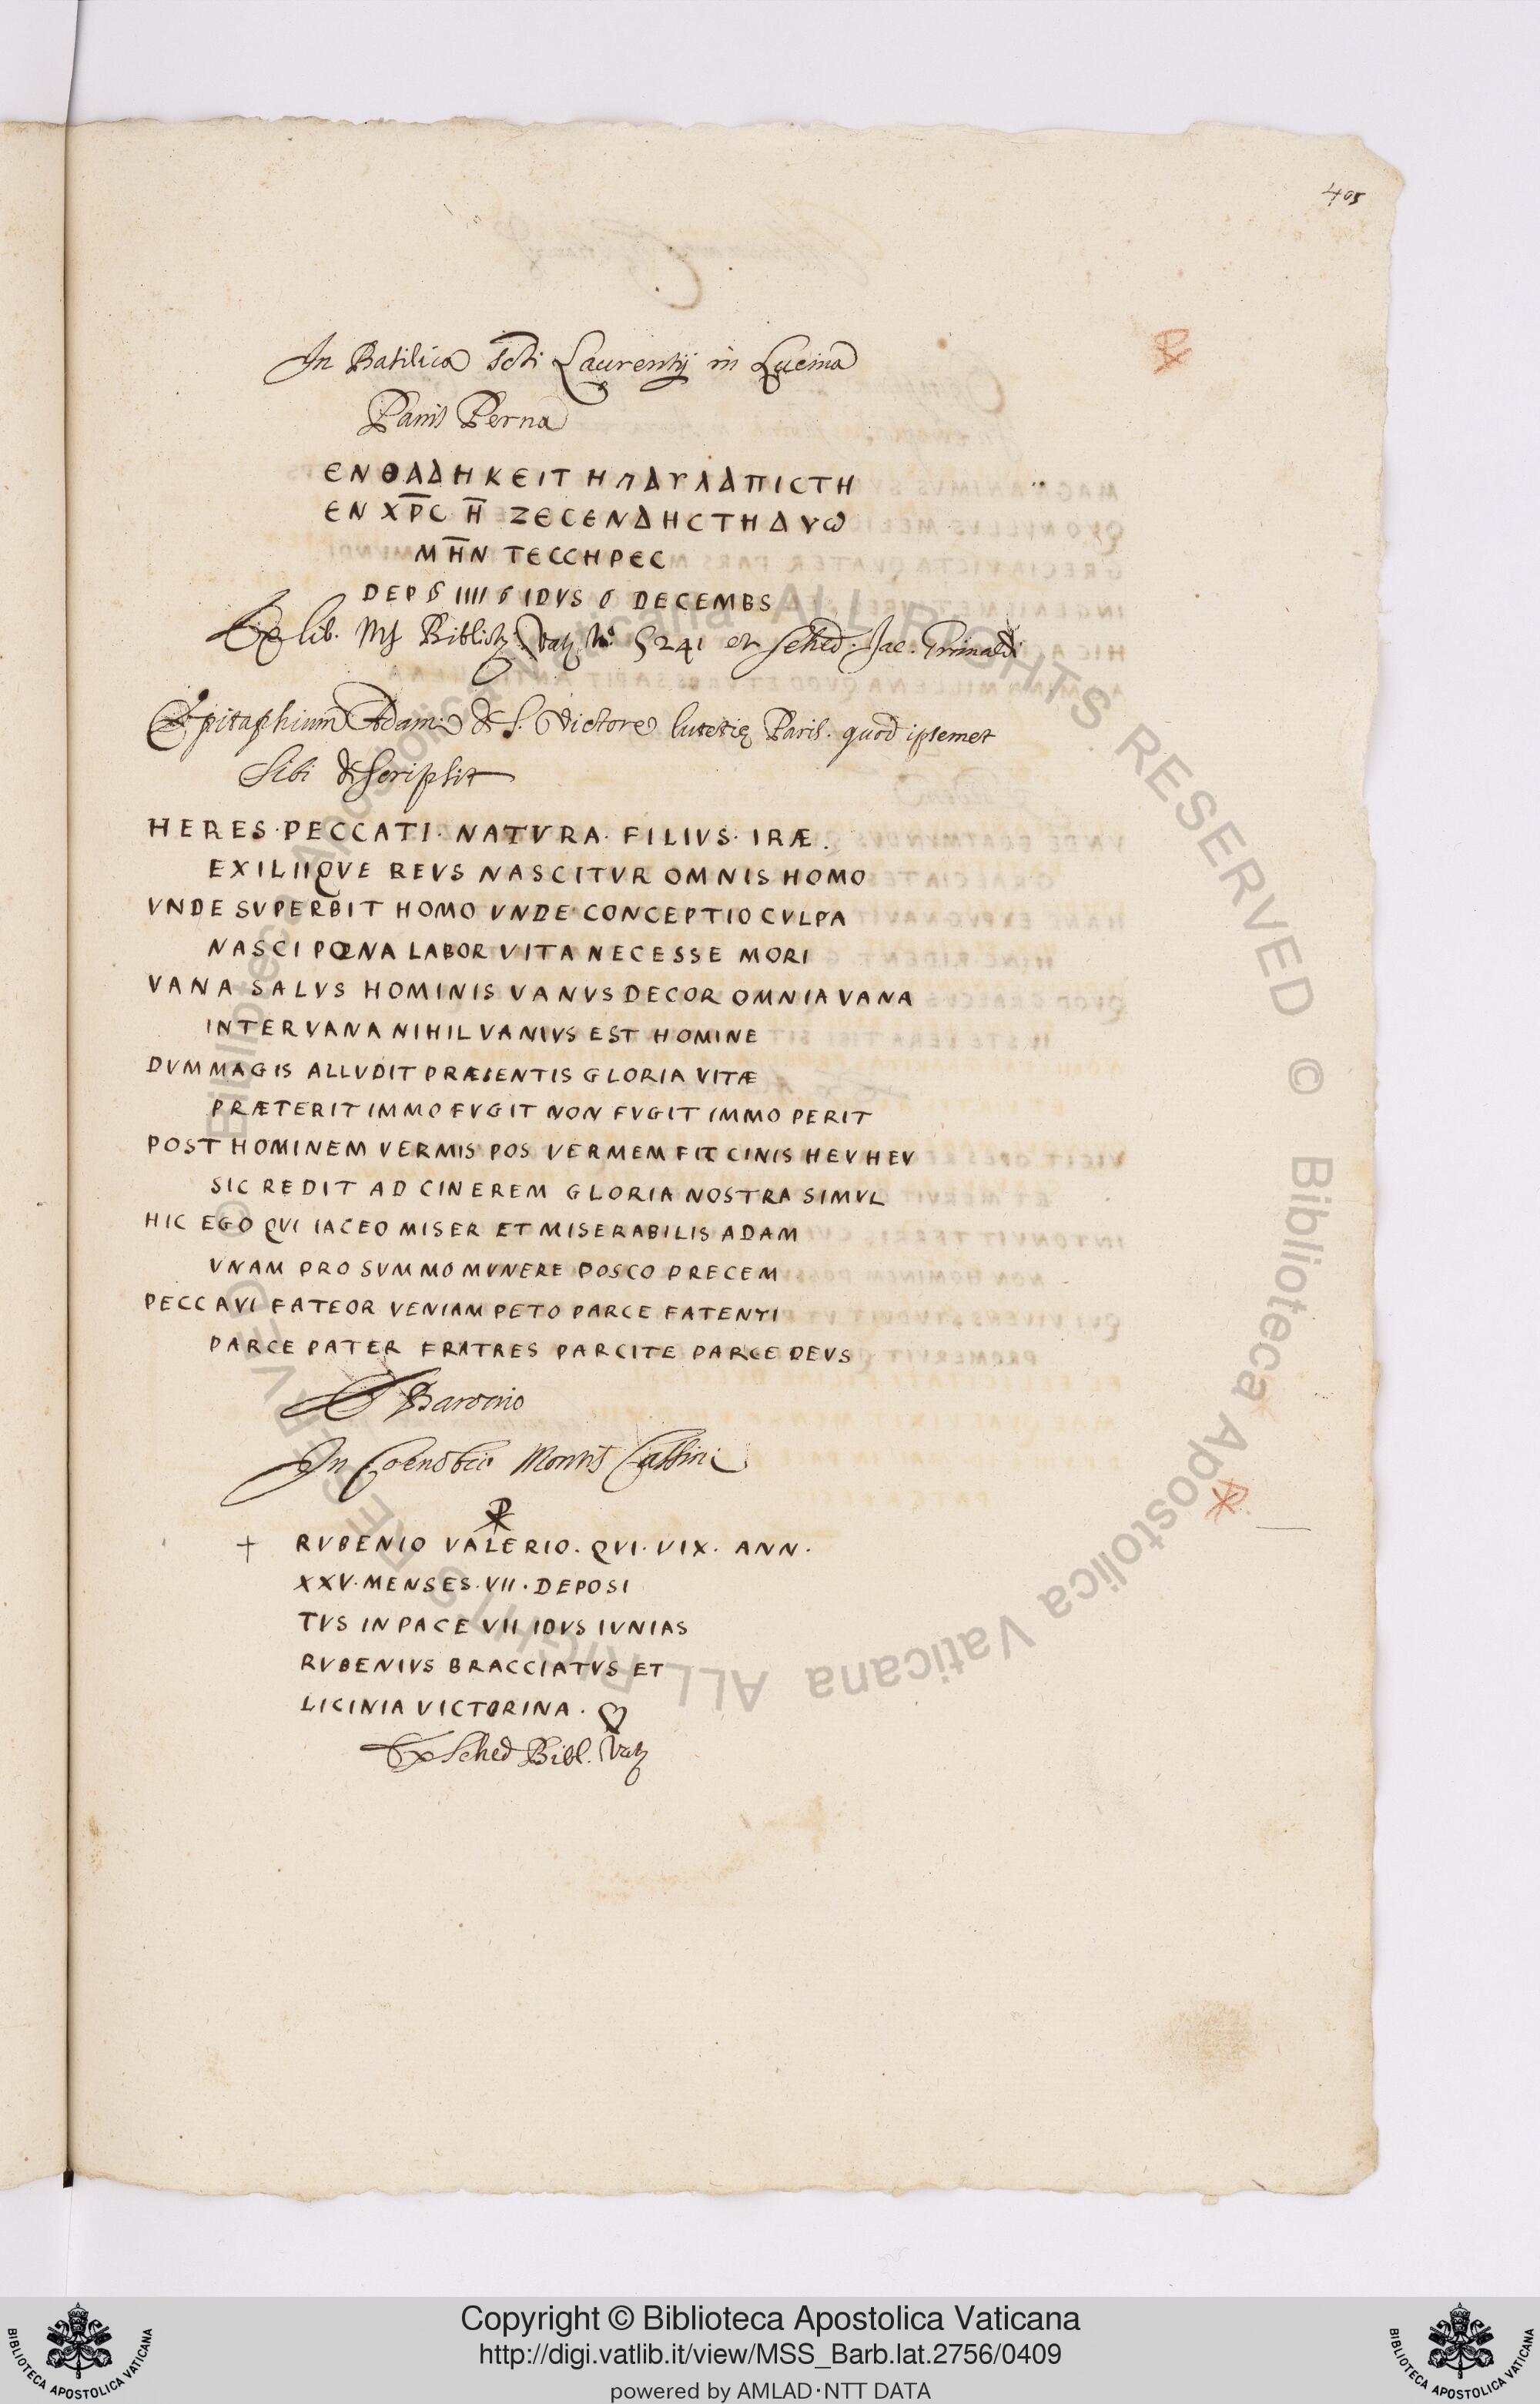 405
In Basilica Scti Laurentij in Lucina
Panis Perna
ЄΝΘΑΔΗΚЄΙΤ ΗΠΑΥΛΑΠΙCΤΗ
ЄΝ ΧΡC Η ΖЄCЄΝΔΗCΤΗΔΥω
ΜΗΝ ΤЄCCΗΡЄC
DEP IIII IDVS DECEMBS
Ex lib. Ms Biblioth. Vat. No. 5241 et sched. Jac. Grimaldi
Epitaphium Adami de S. Victore lutetię Paris. quod ipsemet
sibi descripsit
HERES·PECCATI·NATVRA·FILIVS·IRÆ.
EXILIIQVE REVS NASCITVR OMNIS HOMO
VNDE SVPERBIT HOMO VNDE CONCEPTIO CVLPA
NASCI PŒNA LABOR VITA NECESSE MORI
VANA SALVS HOMINIS VANVS DECOR OMNIA VANA
INTER VANA NIHIL VANIVS EST HOMINE
DVM MAGIS ALLVDIT PRÆSENTIS GLORIA VITÆ
PRÆTERIT IMMO FVGIT NON FVGIT IMMO PERIT
POST HOMINEM VERMIS POS VERMEM FIT CINIS HEV HEV
SIC REDIT AD CINEREM GLORIA NOSTRA SIMVL
HIC EGO QVI IACEO MISER ET MISERABILIS ADAM
VNAM PRO SVMMO MVNERE POSCO PRECEM
PECCAVI FATEOR VENIAM PETO PARCE FATENTI
PARCE PATER FRATRES PARCITE PARCE DEVS
Baronio
In Coenobio Montis Cassini
☧
+ RVBENIO VALERIO. QVI. VIX. ANN.
XXV·MENSES·VII·DEPOSI
TVS IN PACE VII IDVS IVNIAS
RVBENIVS BRACCIATVS ET
LICINIA VICTORINA.
Ex sched Bibl. Vat
Copyright © Biblioteca Apostolica Vaticana
http://digi.vatlib.it/view/MSS_Barb.lat.2756/0409
powered by AMLAD·NTT DATA
BIBLIOTECA APOSTOLICA VATICANA
BIBLIOTECA APOSTOLICA VATICANA
© Biblioteca Apostolica Vaticana ALL RIGHTS RESERVED © Biblioteca Apostolica Vaticana ALL RIGHTS RESERVED